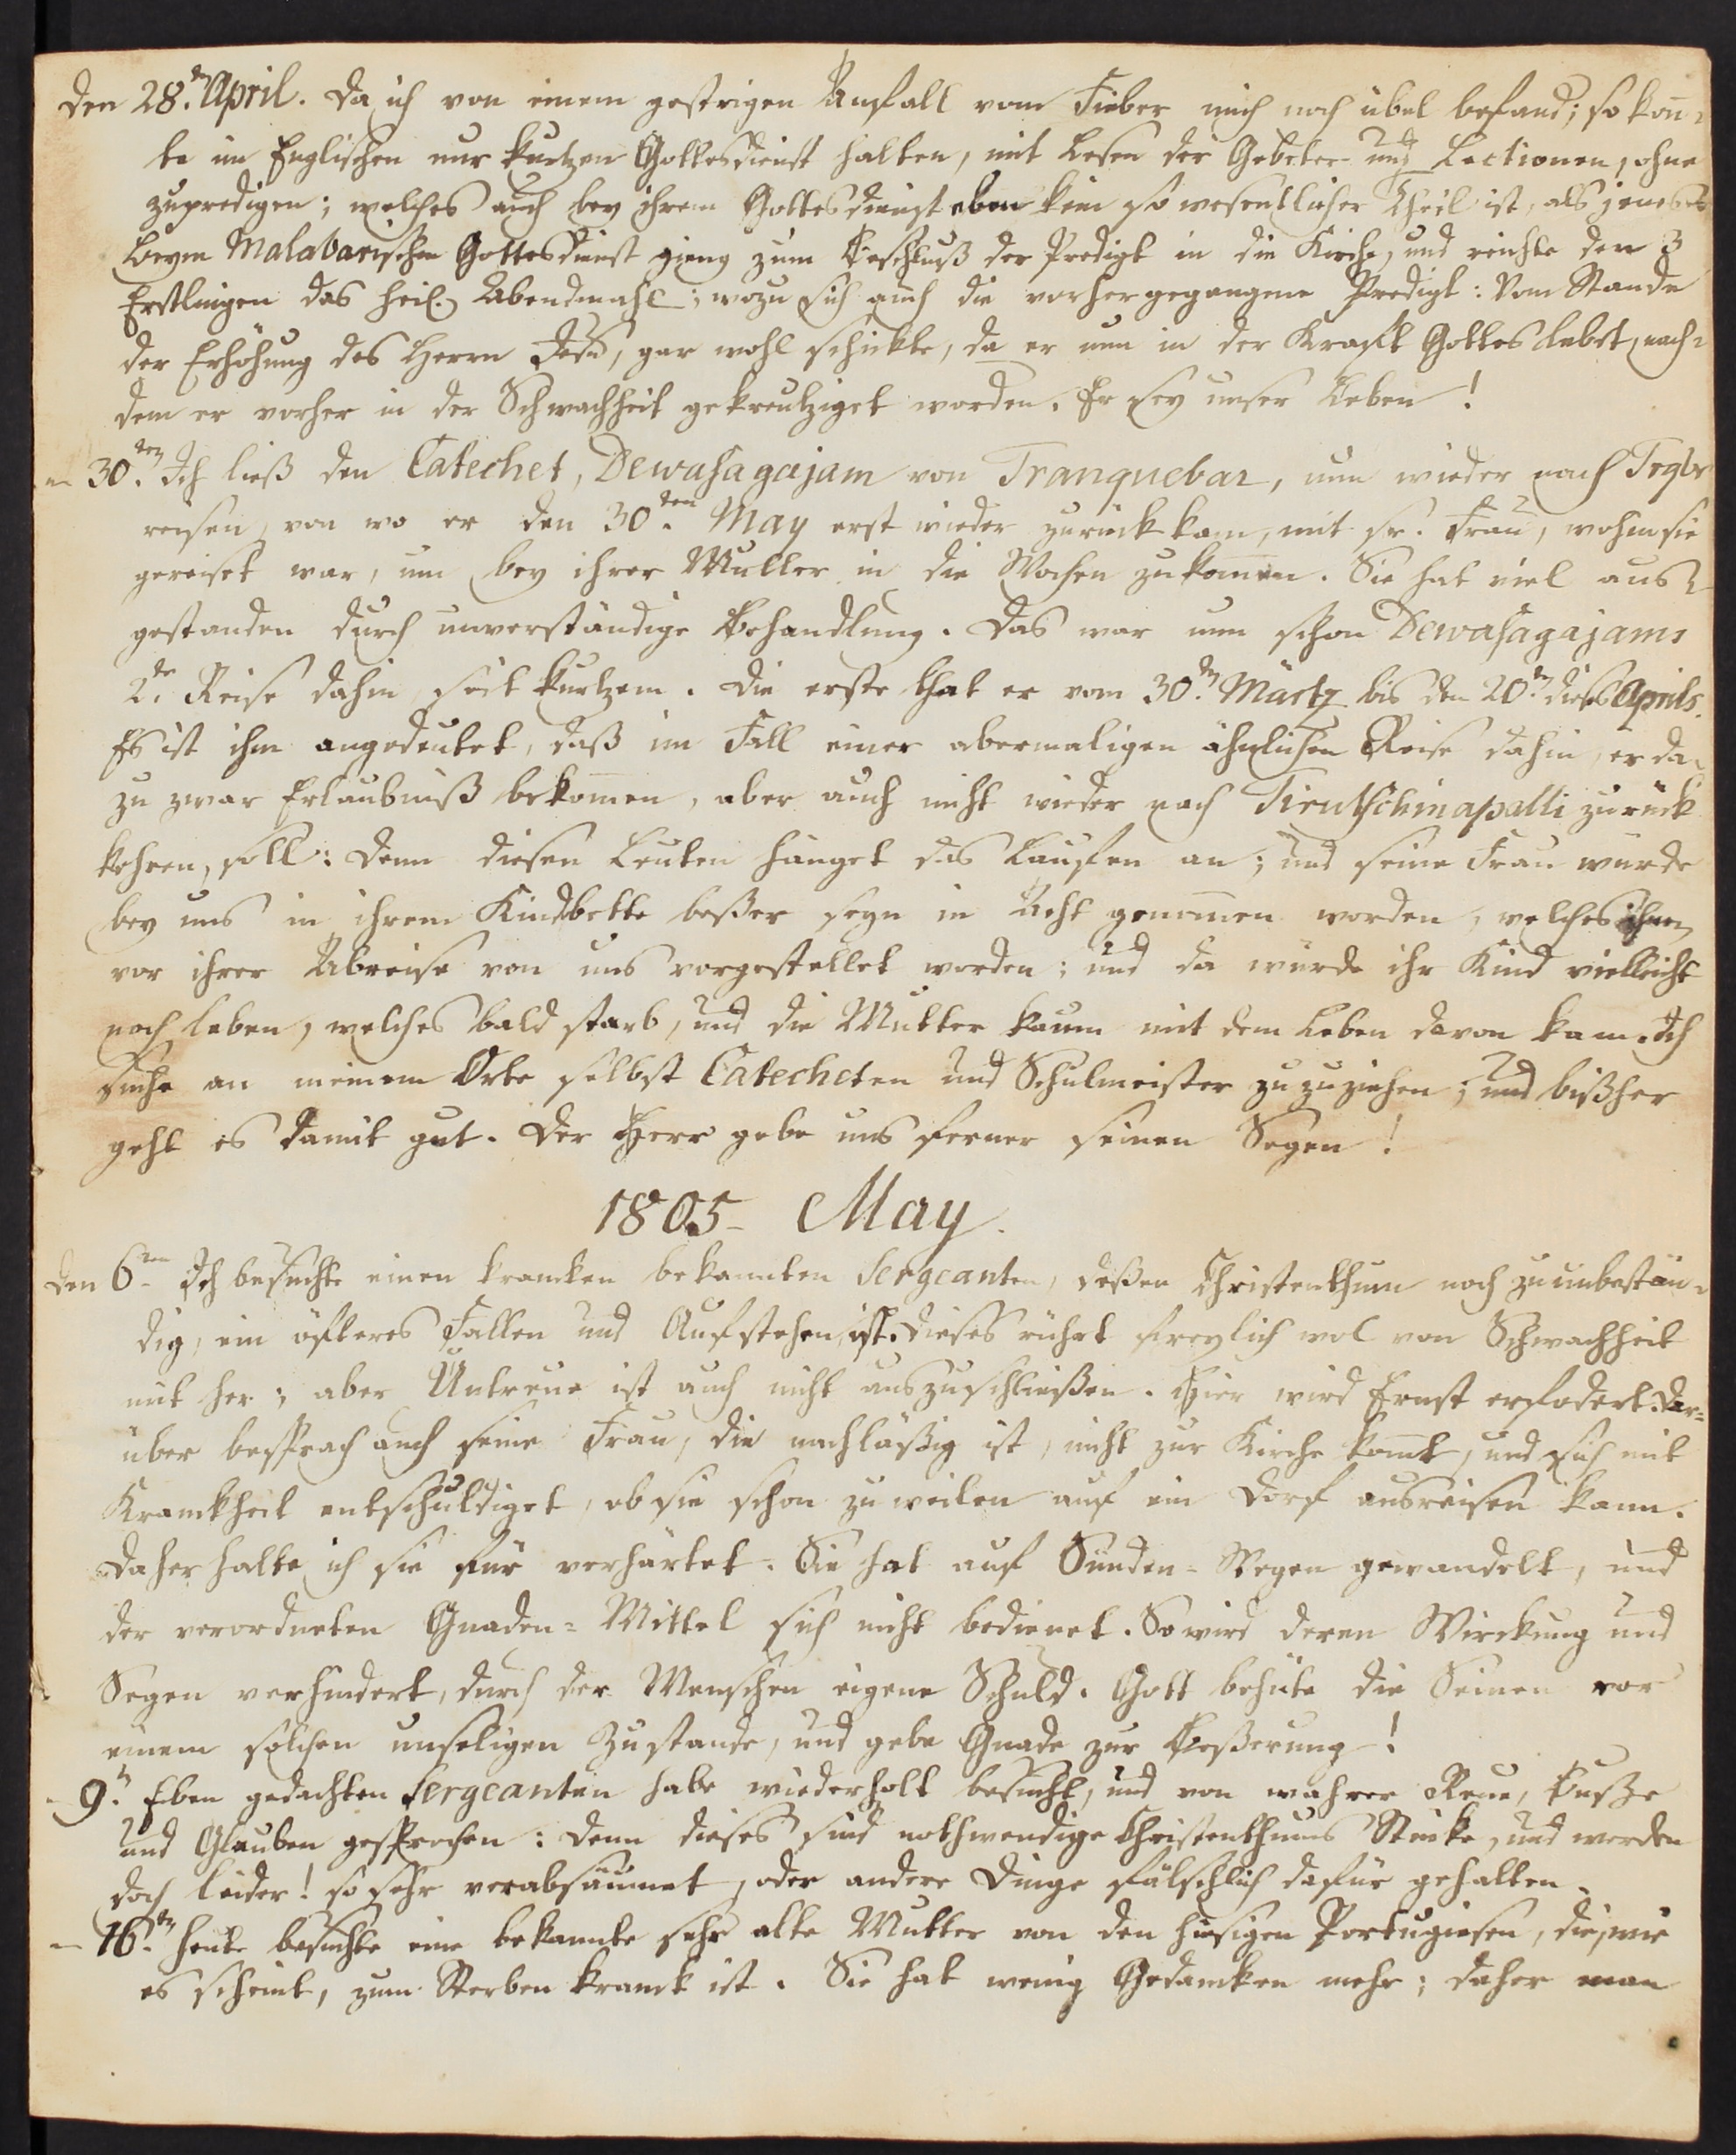 Den 28.ten April. Da ich von einem gestrigen Anfall vom Fieber mich noch übel befand; so kon̄-
te im Englischen nur kurtzen Gottesdienst halten, mit Lesen der Gebeter und Lectionen, ohne
zupredigen; welches auch bey ihrem Gottesdienst eben kein so wesentlicher Theil ist, als jenes.
Beym Malabarischen Gottesdienst gieng zum Beschluß der Predigt in die Kirche, und reichte den 3
Erstlingen das heil. Abendmahl; wozu sich auch die vorhergegangene Predigt: Vom Stande
der Erhöhung des Herrn Jesu, gar wohl schickte, da er nun in der Kraft Gottes lebet, nach-
dem er vorher in der Schwachheit gekreutziget worden. Er sey unser Leben!
– 30.ten Ich ließ den Catechet, Dewasagajam von Tranquebar, nun wieder nach Trqbr
reisen, von wo er den 30.ten May erst wieder zurück kam, mit sr. Frau, wohin sie
gereiset war, um bey ihrer Mutter in die Wochen zukom̄en. Sie hat viel aus-
gestanden durch unverständige Behandlung. Das war nun schon Dewasagajams
2.te Reise dahin seit kurtzem. Die erste that er vom 30.ten Märtz bis den 20.ten dieses Aprils.
Es ist ihm angedeutet, daß im Fall einer abermaligen ähnlichen Reise dahin, er da-
zu zwar Erlaubniß bekom̄en, aber auch nicht wieder nach Tirutschinapalli zurück
kehren, soll: Denn diesen Leuten hänget das Laufen an; und seine Frau würde
bey uns in ihrem Kindbette beßer seyn in Acht genom̄en worden, welches ihnen
vor ihrer Abreise von uns vorgestellet worden; und da würde ihr Kind vielleicht
noch leben, welches bald starb, und die Mutter kaum mit dem Leben davon kam. Ich
suche an meinem Orte selbst Catecheten und Schulmeister zuzuziehen; und bißher
geht es damit gut. Der Herr gebe uns ferner seinen Segen!
1805 – May.
Den 6ten Ich besuchte einen krancken bekannten Sergeanten, deßen Christenthum noch zu unbestän-
dig, ein öfteres Fallen und Aufstehen, ist. Dieses rührt freylich wol von Schwachheit
mit her; aber Untreue ist auch nicht auszuschließen. Hier wird Ernst erfodert. Dar-
über besprach auch seine Frau, die nachläßig ist, nicht zur Kirche kom̄t, und sich mit
Kranckheit entschuldiget, ob sie schon zuweilen auf ein Dorf ausreisen kann.
Daher halte ich sie für verhärtet. Sie hat auf Sünden-Wegen gewandelt, und
der verordneten Gnaden-Mittel sich nicht bedienet. So wird deren Wirckung und
Segen verhindert, durch der Menschen eigene Schuld. Gott behüte die Seinen vor
einem solchen unseligen Zustande, und gebe Gnade zur Beßerung!
– 9.ten Eben gedachten Sergeanten habe wiederholt besucht, und von wahrer Reue, Buße
und Glauben gesprochen: Denn dieses sind nothwendige Christenthums Stücke, und werden
doch leider! so sehr verabsäumet, oder andere Dinge fälschlich dafür gehalten.
– 16.ten Heute besuchte eine bekannte sehr alte Mutter von den hiesigen Portugiesen, die, wie
es scheint, zum Sterben kranck ist. Sie hat wenig Gedancken mehr; daher man